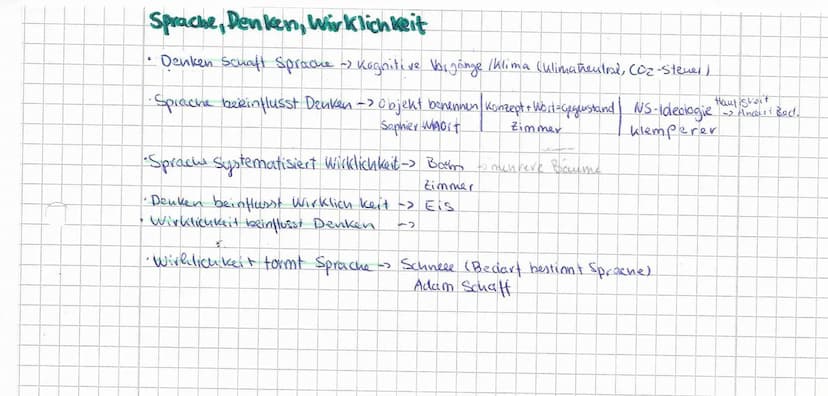 Sprache, Denken, Wirklichkeit
• Denken schaft Sprache -> Kognitive Vorgänge / Klima (klimaneutral, CO2-Steuer)
• Sprache beeinflusst Denken -> Objekt benennen | Konzept + Wort = Gegenstand | NS-Ideologie ->
Saphier Whorf | Zimmer | Klemperer
• Sprache systematisiert Wirklichkeit -> Baum -> mehrere Bäume
Zimmer
• Denken beinflusst Wirklichkeit -> Eis
• Wirklichkeit beinflusst Denken ->
• Wirklichkeit formt Sprache -> Schnee (Bedarf bestimmt Sprache)
Adam Schaff